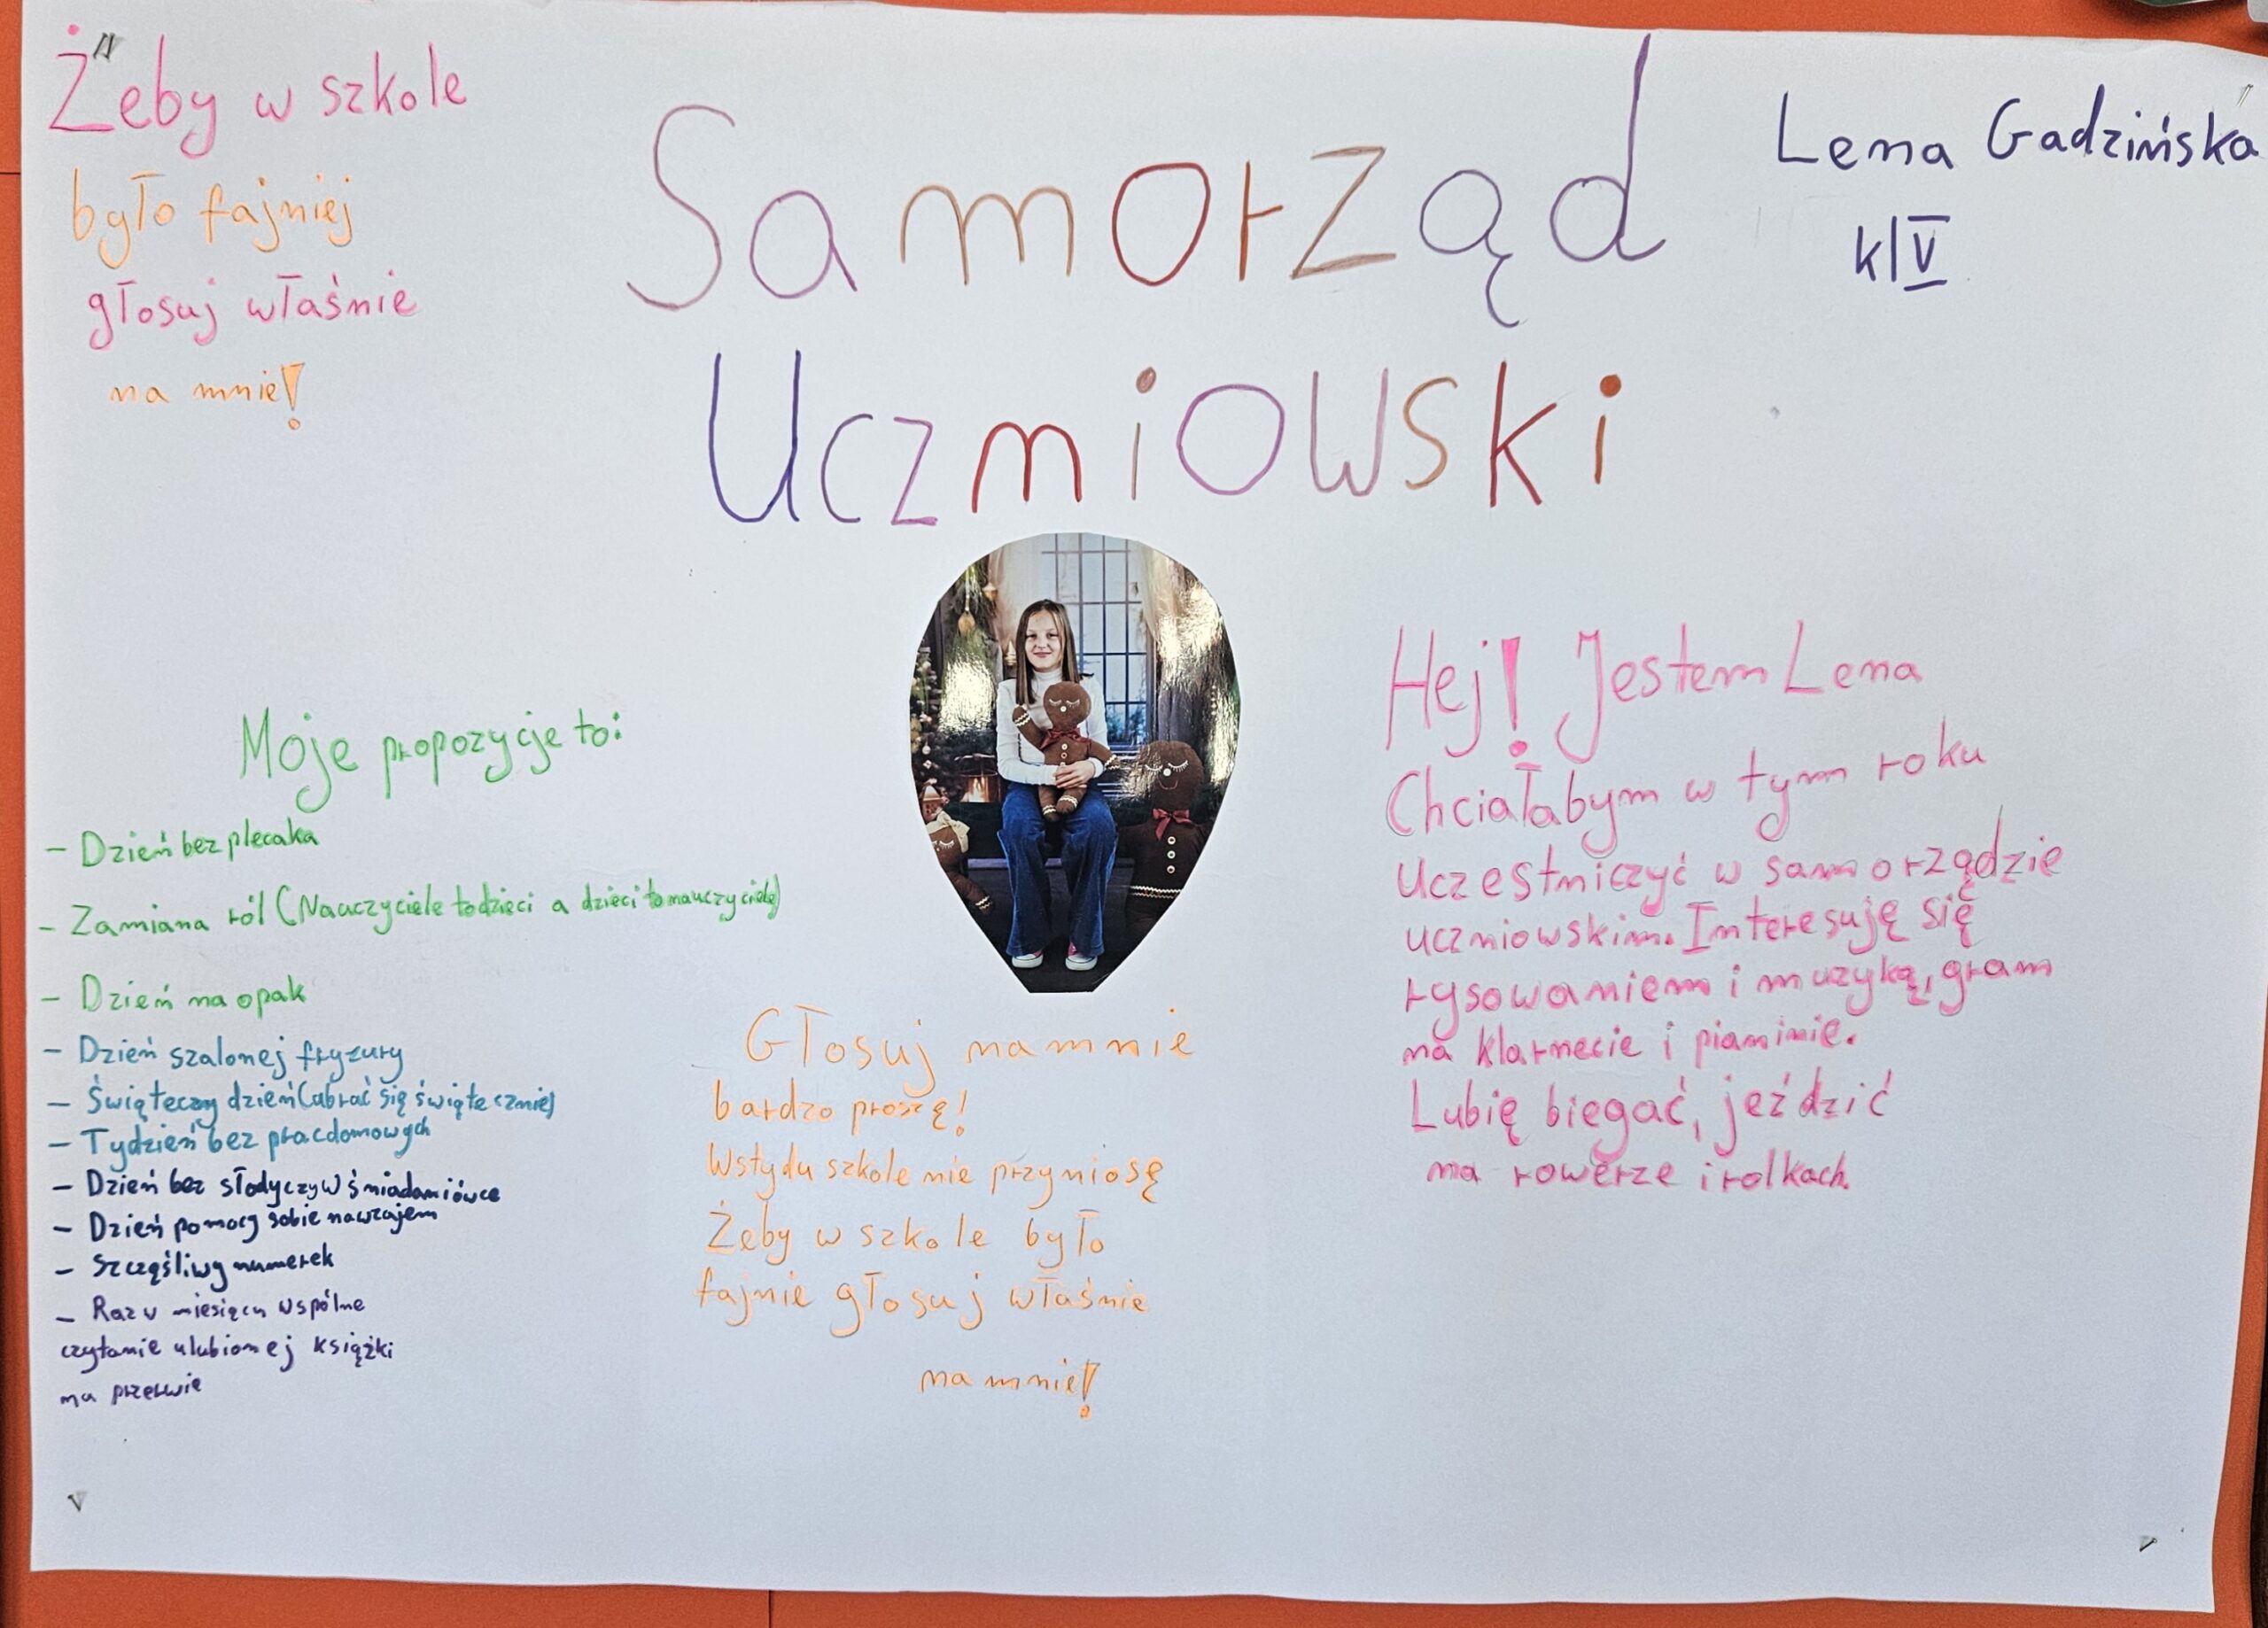 Żeby w szkole
było fajniej
głosuj właśnie
na mnie!
Samorząd
Uczniowski
Lena Gadzińska
kl V
Moje propozycje to:
- Dzień bez plecaka
- Zamiana ról (Nauczyciele to dzieci a dzieci to nauczyciele)
- Dzień na opak
- Dzień szalonej fryzury
- Świąteczny dzień (ubrać się świątecznie)
- Tydzień bez prac domowych
- Dzień bez słodyczy w śniadaniówce
- Dzień pomocy sobie nawzajem
- Szczęśliwy numerek
- Raz w miesiącu wspólne
czytanie ulubionej książki
na przerwie
Głosuj na mnie
bardzo proszę!
Wstydu szkole nie przyniosę
Żeby w szkole było
fajnie głosuj właśnie
na mnie!
Hej! Jestem Lena
Chciałabym w tym roku
uczestniczyć w samorządzie
uczniowskim. Interesuję się
rysowaniem i muzyką, gram
na klarnecie i pianinie.
Lubię biegać, jeździć
na rowerze i rolkach.